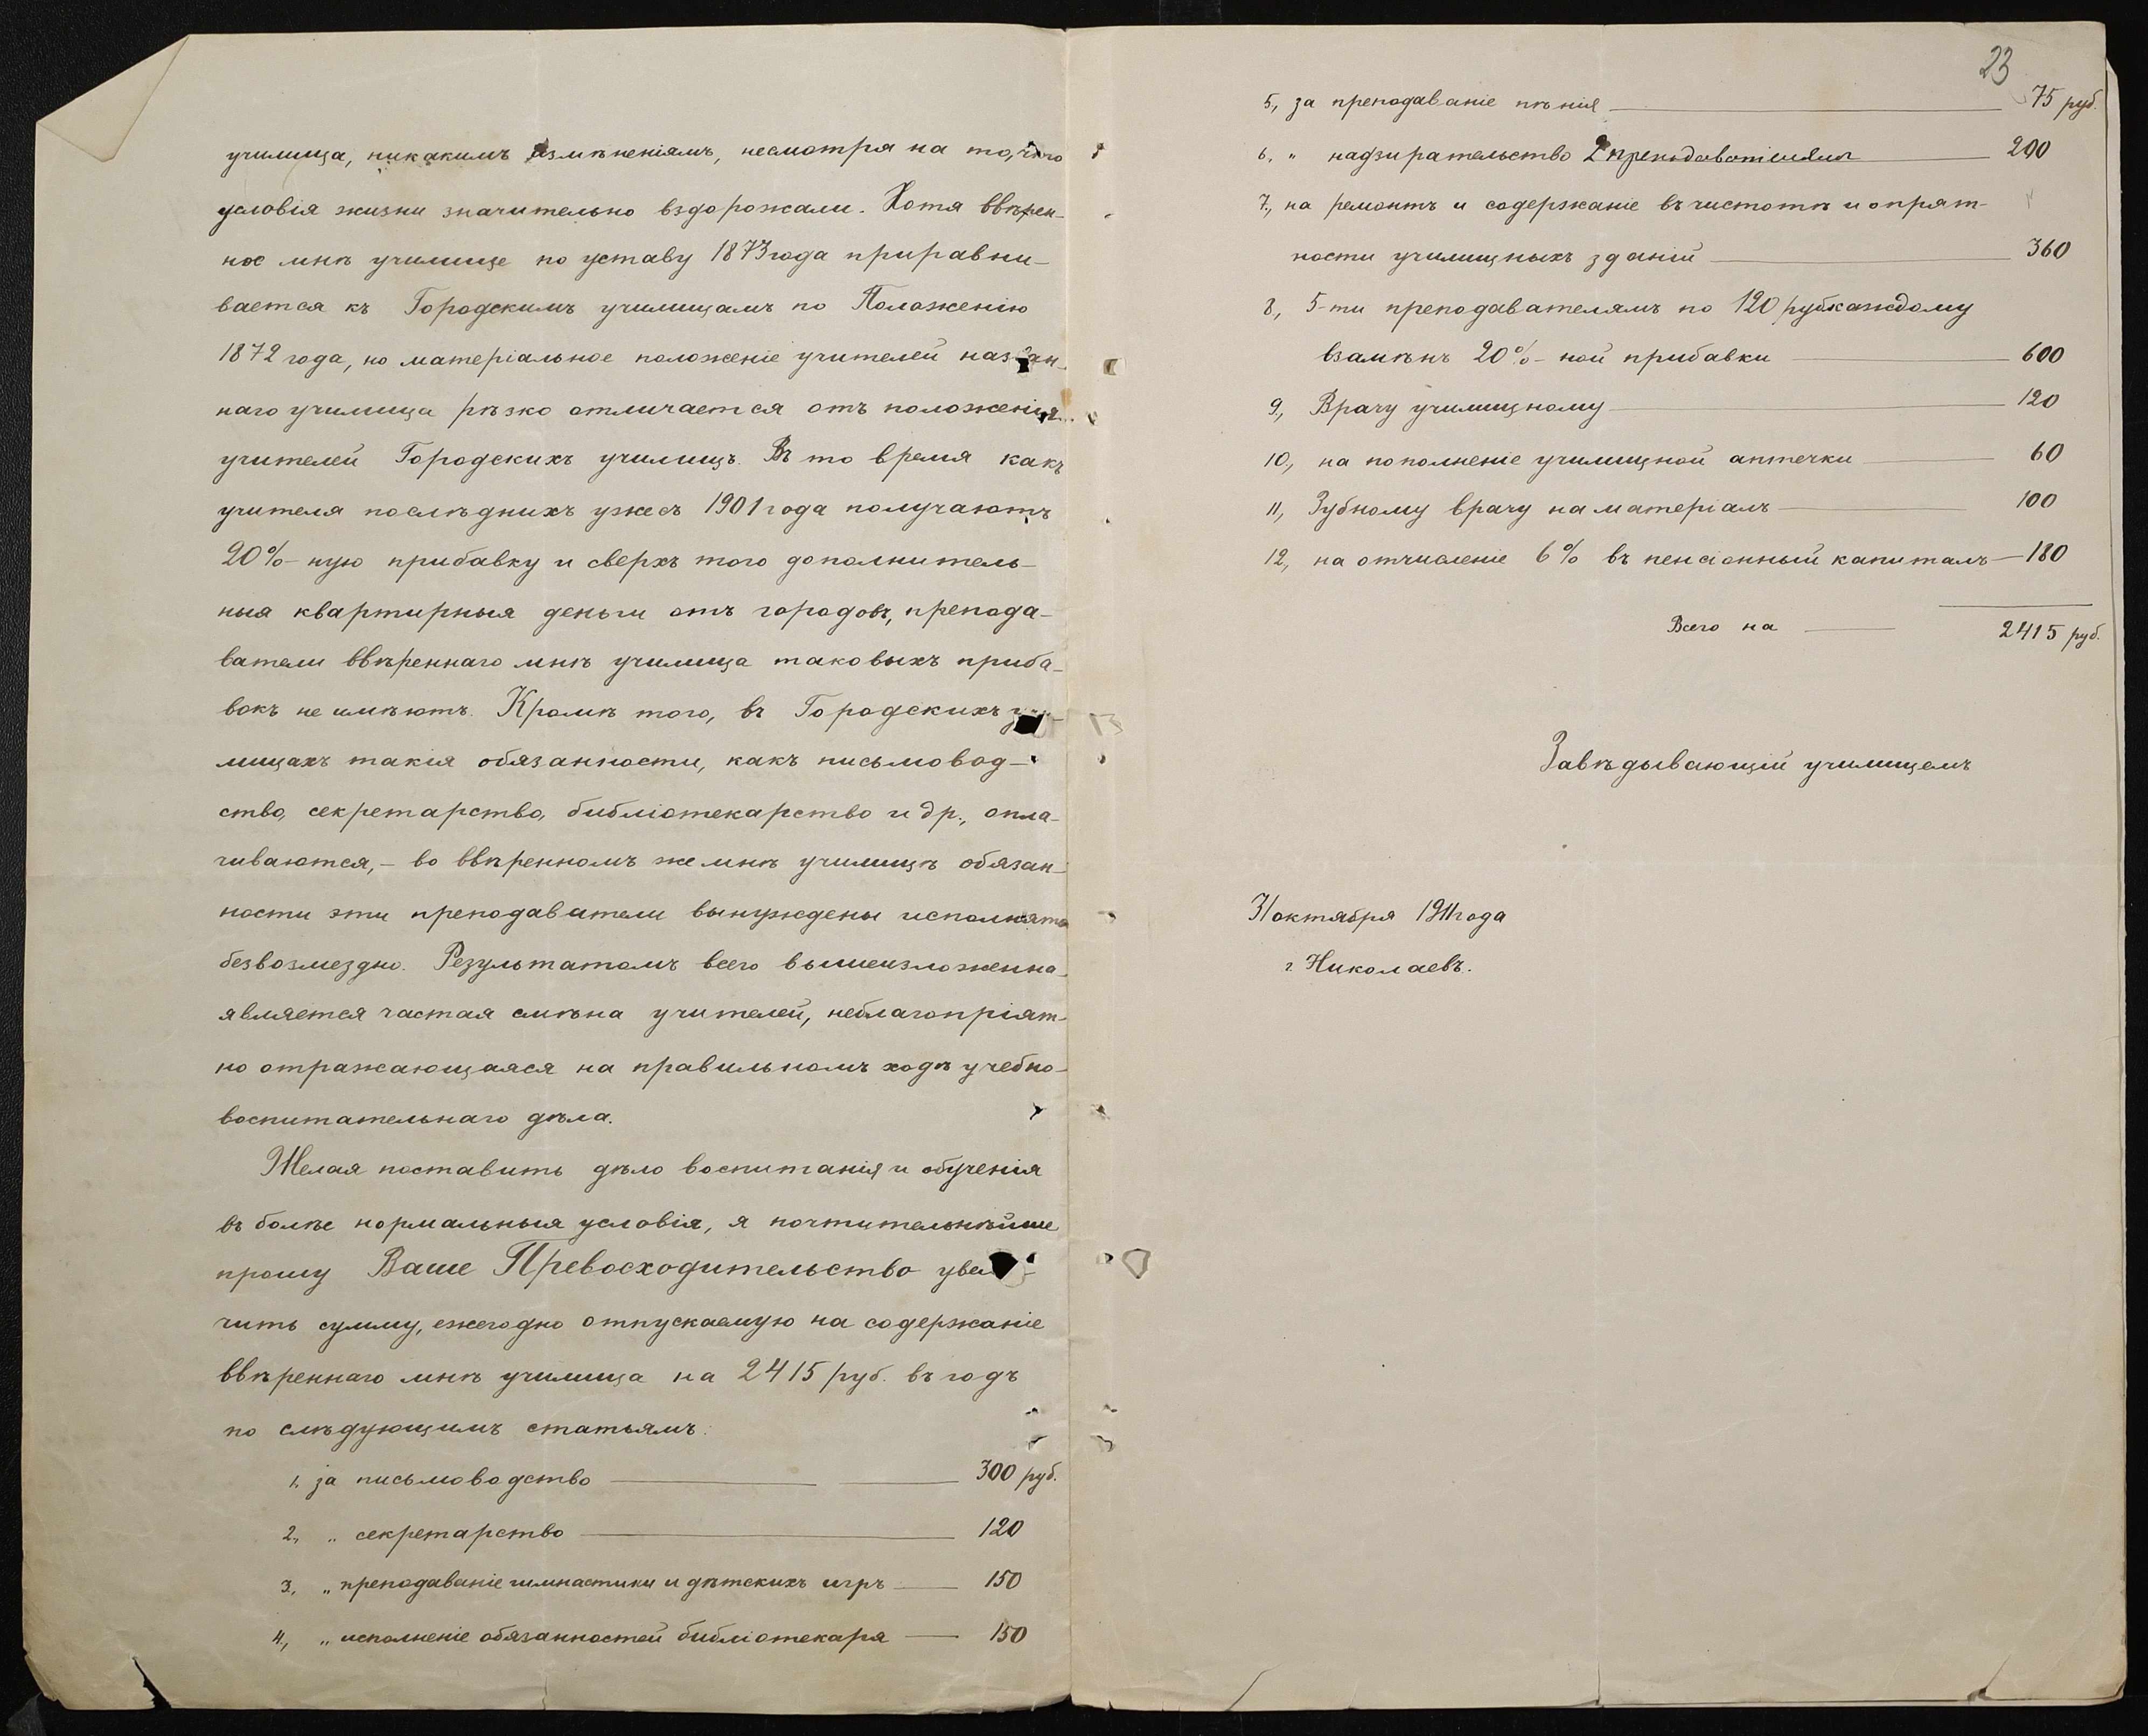 училища, никакимъ измѣненіямъ, несмотря на то, что
условія жизни значительно вздорожали. Хотя ввѣрен-
ное мнѣ училище по уставу 1873 года приравни-
вается къ Городскимъ училищамъ по Положенію
1872 года, но матеріальное положеніе учителей назван-
наго училища рѣзко отличается отъ положенія
учителей Городскихъ училищъ. Въ то время какъ
учителя послѣднихъ уже съ 1901 года получаютъ
20%-ную прибавку и сверхъ того дополнитель-
ныя квартирныя деньги отъ городовъ, препода-
ватели ввѣреннаго мнѣ училища таковыхъ приба-
вокъ не имѣютъ. Кромѣ того, въ Городскихъ учи-
лищахъ такія обязанности, какъ письмовод-
ство, секретарство, библіотекарство и др., опла-
чиваются, - во ввѣренномъ же мнѣ училищѣ обязан-
ности эти преподаватели вынуждены исполнять
безвозмездно. Результатомъ всего вышеизложенна-
является частая смѣна учителей, неблагопріят-
но отражающаяся на правильномъ ходѣ учебно-
воспитательнаго дѣла.
Желая поставить дѣло воспитанія и обученія
въ болѣе нормальныя условія, я почтительнѣйше
прошу Ваше Превосходительство увели-
чить сумму, ежегодно отпускаемую на содержаніе
ввѣреннаго мнѣ училища на 2415 руб. въ годъ
по слѣдующимъ статьямъ:
1, за письмоводство — 300 руб.
2, „ секретарство — 120
3, „ преподаваніе гимнастики и дѣтскихъ игръ — 150
4, „ исполненіе обязанностей библіотекаря — 150
23
5, за преподаваніе пѣнія — 75 руб.
6, „ надзирательство 2 преподавателямъ — 200
7, на ремонтъ и содержаніе въ чистотѣ и опрят-
ности училищныхъ зданій — 360
8, 5-ти преподавателямъ по 120 руб каждому
взамѣнъ 20%-ной прибавки — 600
9, Врачу училищному — 120
10, на пополненіе училищной аптечки — 60
11, Зубному врачу на матеріалъ — 100
12, на отчисленіе 6% въ пенсіонный капиталъ — 180
Всего на — 2415 руб.
Завѣдывающій училищемъ
31 октября 1911 года
г. Николаевъ.